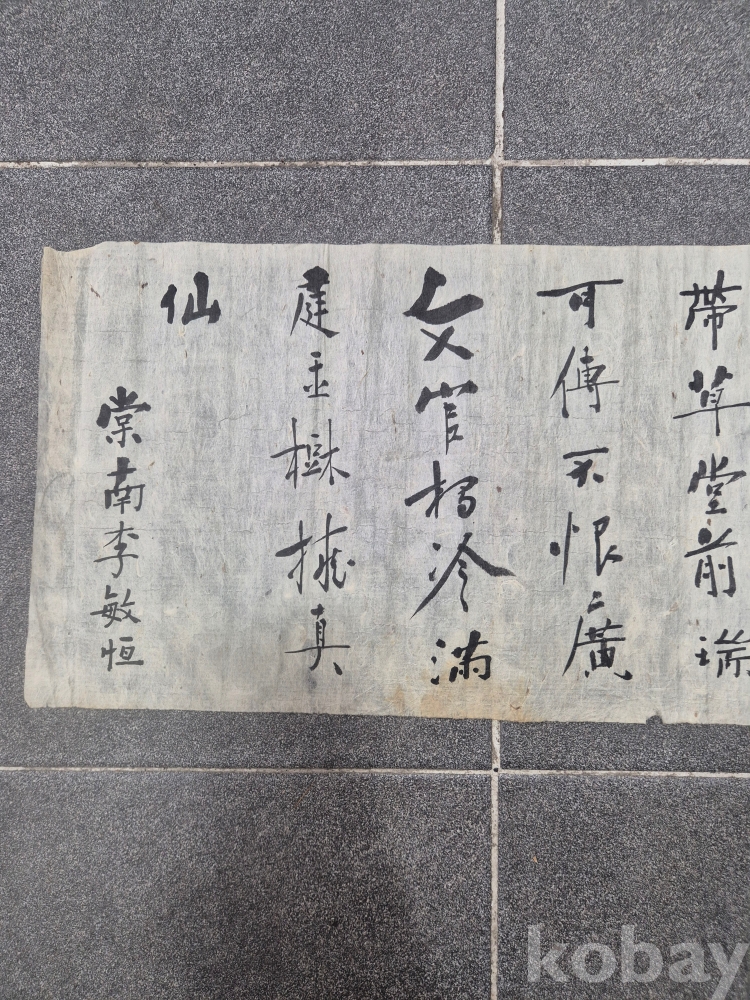 帶草堂前瑞
可傳不恨廣
文官獨冷滿
庭玉樹擁真
仙
棠南李敏恒
kobay